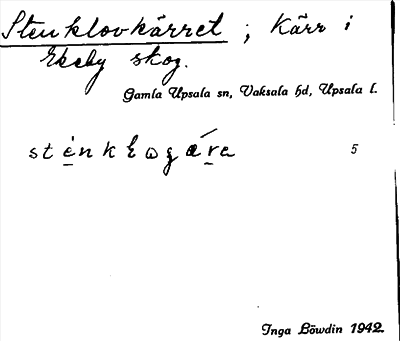 Stenklovkärret ; Kärr i
Ekeby skog.
Gamla Upsala sn, Vaksala hd, Upsala l.
sténkɫωgǽra 5
Inga Löwdin 1942.